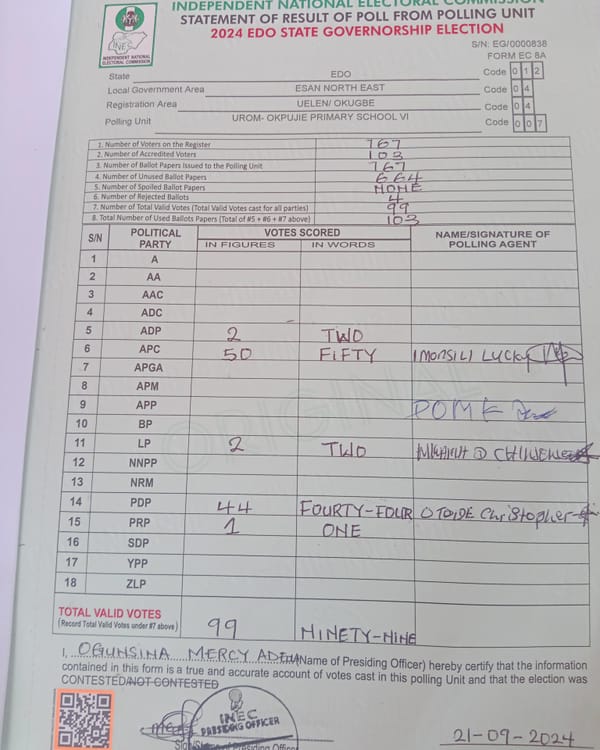 INDEPENDENT NATIONAL ELECTORAL COMMISSION
STATEMENT OF RESULT OF POLL FROM POLLING UNIT
2024 EDO STATE GOVERNORSHIP ELECTION
S/N: EG/0000838
FORM EC 8A
INEC
INDEPENDENT NATIONAL ELECTORAL COMMISSION
State EDO Code 0 1 2
Local Government Area ESAN NORTH EAST Code 0 4
Registration Area UELEN/ OKUGBE Code 0 4
Polling Unit UROM- OKPUJIE PRIMARY SCHOOL VI Code 0 0 7
1. Number of Voters on the Register 767
2. Number of Accredited Voters 103
3. Number of Ballot Papers Issued to the Polling Unit 767
4. Number of Unused Ballot Papers 664
5. Number of Spoiled Ballot Papers NONE
6. Number of Rejected Ballots 4
7. Number of Total Valid Votes (Total Valid Votes cast for all parties) 99
8. Total Number of Used Ballots Papers (Total of #5 + #6 + #7 above) 103
S/N POLITICAL PARTY VOTES SCORED NAME/SIGNATURE OF POLLING AGENT
IN FIGURES IN WORDS
1 A
2 AA
3 AAC
4 ADC
5 ADP 2 TWO
6 APC 50 FIFTY Lucky
7 APGA
8 APM
9 APP
10 BP
11 LP 2 TWO
12 NNPP
13 NRM
14 PDP 44 FOURTY-FOUR Christopher
15 PRP 1 ONE
16 SDP
17 YPP
18 ZLP
ORIGINAL
TOTAL VALID VOTES 99 NINETY-NINE
(Record Total Valid Votes under #7 above)
I, OGUNSINA MERCY (Name of Presiding Officer) hereby certify that the information
contained in this form is a true and accurate account of votes cast in this polling Unit and that the election was
CONTESTED/NOT CONTESTED
INEC
PRESIDING OFFICER
Presiding Officer
21-09-2024